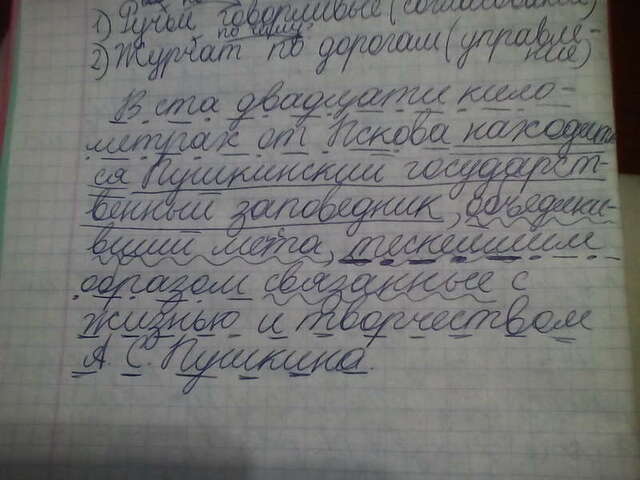 1) Ручьи говорливые (согласование)
по чему?
2) Журчат по дорогам (управле-
ние)
В ста двадцати кило-
метрах от Пскова находит-
ся Пушкинский государст-
венный заповедник, объедини-
вший места, теснейшим
образом связанные с
жизнью и творчеством
А. С. Пушкина.